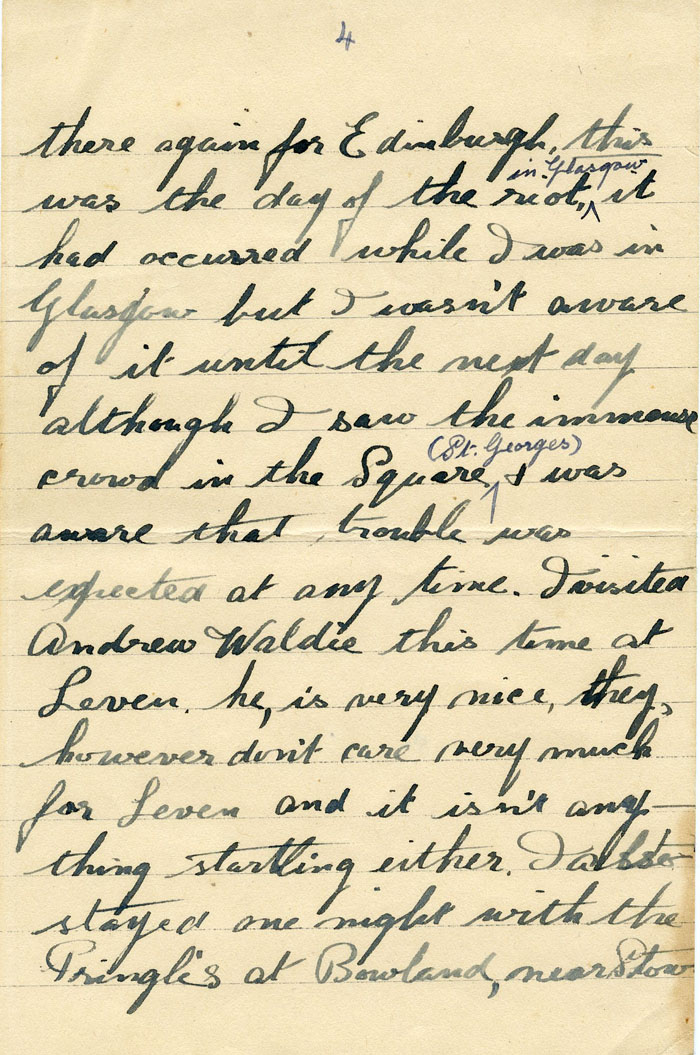 4
there again for Edinburgh, this
in Glasgow
was the day of the riot, ^ it
had occurred while I was in
Glasgow but I wasn't aware
of it until the next day
although I saw the immense
(St. Georges)
crowd in the Square ^ & was
aware that trouble was
expected at any time. I visited
Andrew Waldie this time at
Leven. he, is very nice, they,
however don't care very much
for Leven and it isn't any-
thing startling either. I also
stayed one night with the
Pringle's at Bowland, near Stow